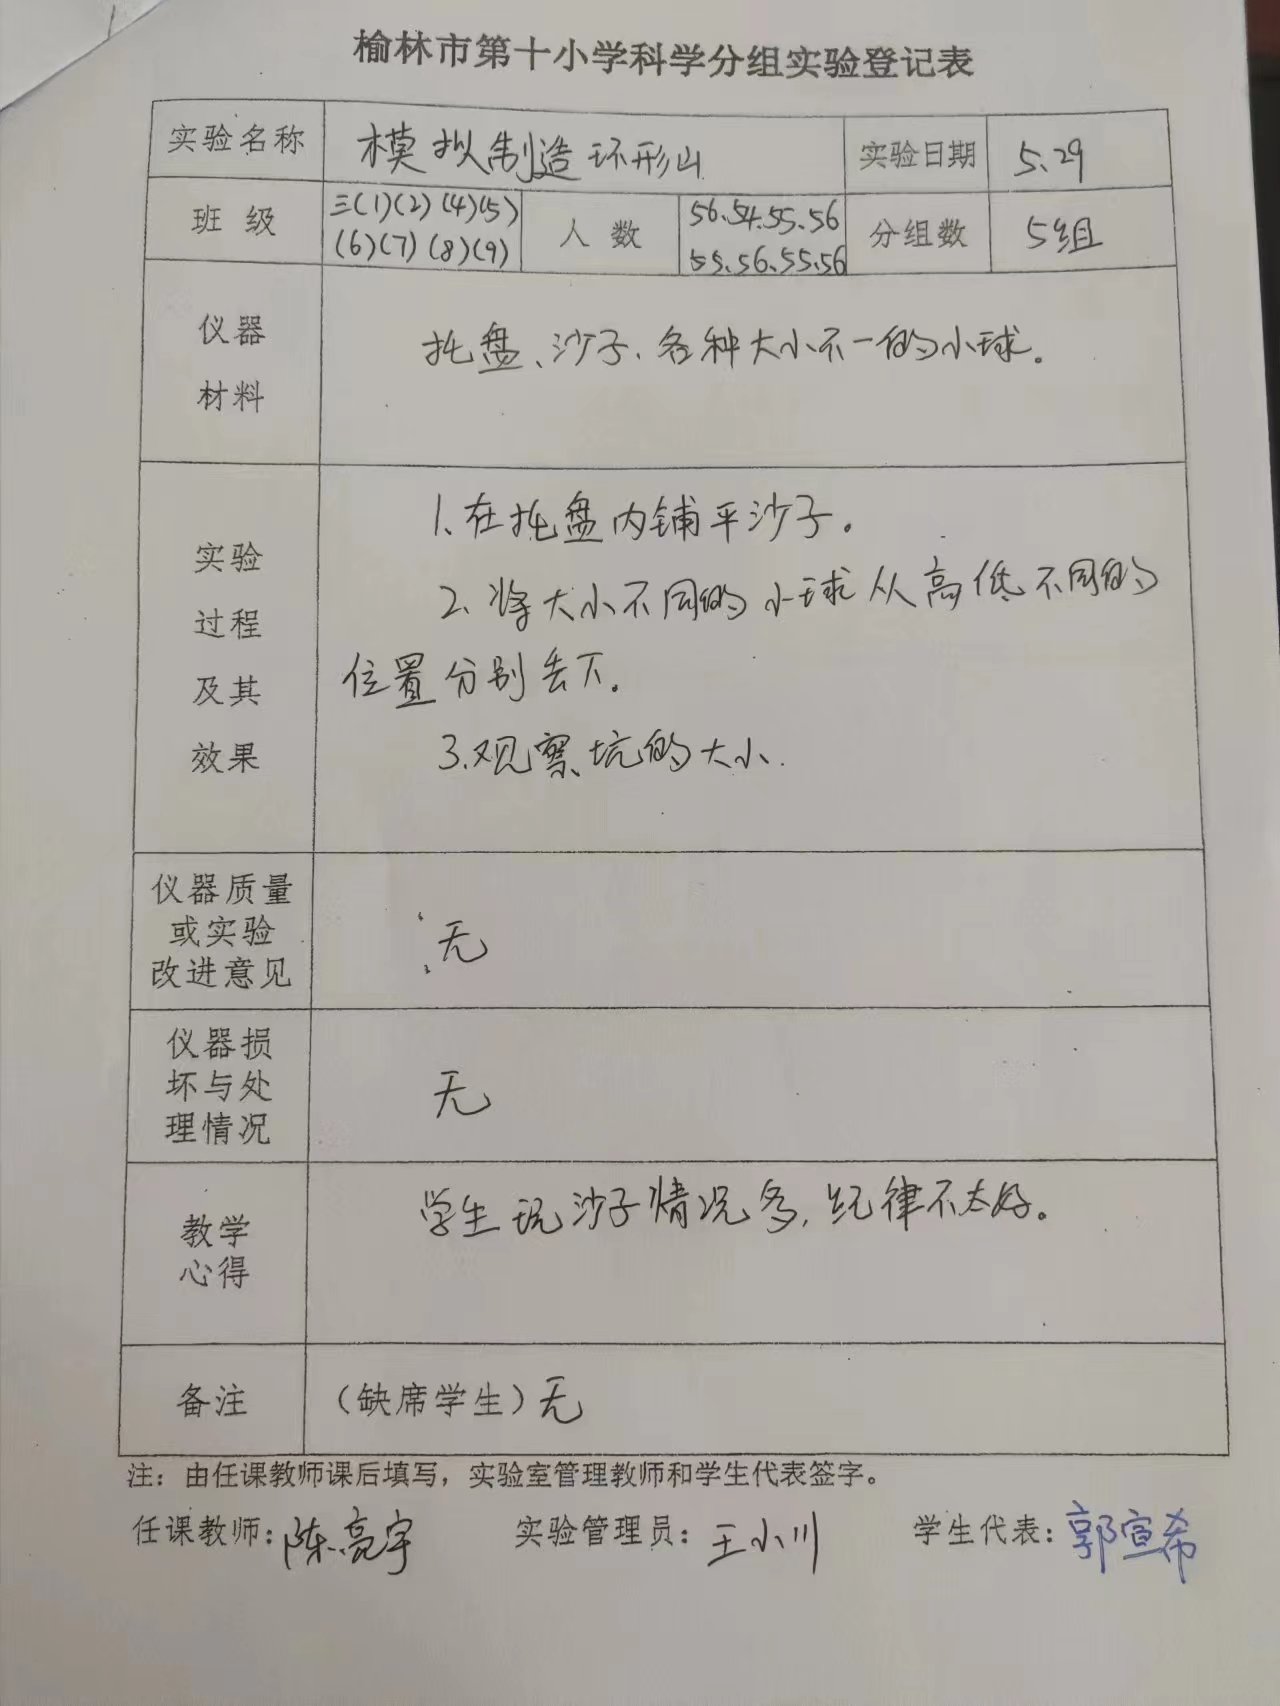 榆林市第十小学科学分组实验登记表
实验名称 模拟制造环形山 实验日期 5.29
班级 三(1)(2)(4)(5) 人数 56.54.55.56 分组数 5组
(6)(7)(8)(9) 55.56.55.56
仪器 托盘、沙子、各种大小不一的小球。
材料
1.在托盘内铺平沙子。
实验
2.将大小不同的小球从高低不同的
过程
位置分别丢下。
及其
3.观察坑的大小.
效果
仪器质量
或实验 无
改进意见
仪器损
坏与处 无
理情况
学生玩沙子情况多,纪律不太好。
教学
心得
备注 (缺席学生)无
注:由任课教师课后填写,实验室管理教师和学生代表签字。
任课教师:陈亮宇 实验管理员:王小川 学生代表:郭宣希